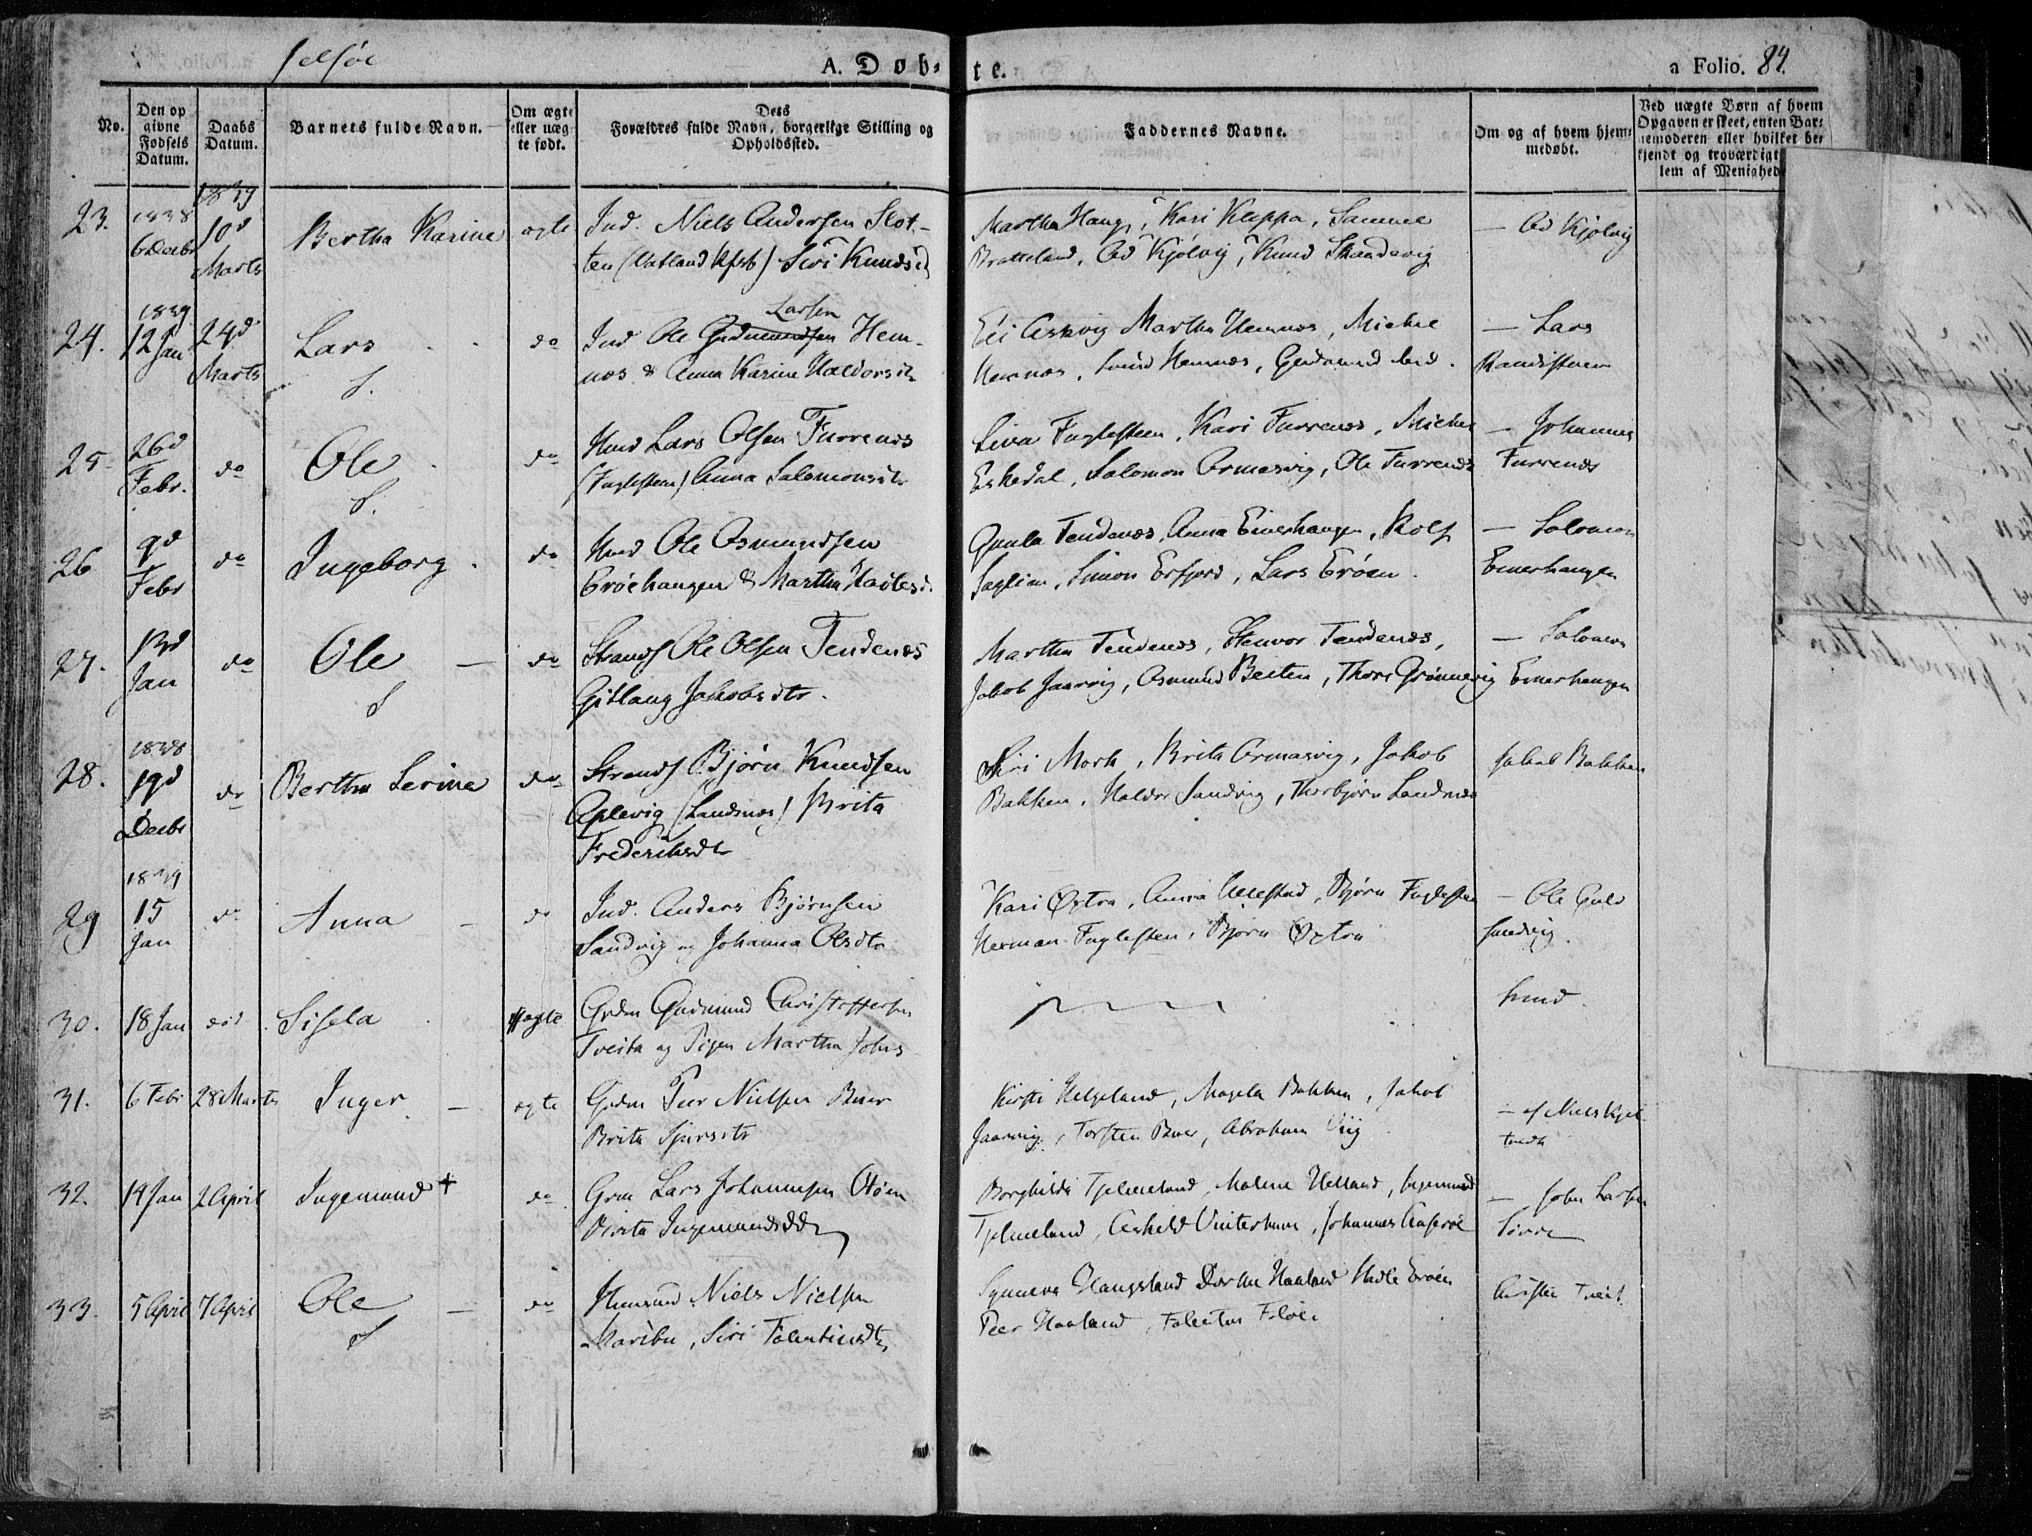 Jelsøe
A. Døb- te.
a Folio. 84.
No.
Den op
givne
Fødsels
Datum.
Daabs
Datum.
Barnets fulde Navn.
Om ægte
eller uæg-
te født.
Dets
Forældres fulde Navn, borgerlige Stilling og
Opholdssted.
Faddernes Navne.
Om og af hvem hjem-
medøbt.
Ved uægte Børn af hvem
Opgaven er skeet, enten Bar-
nemoderen eller hvilket be-
kjendt og troværdigt
lem af Menighed
23. 1838 6 Decbr 1839 10d Marts Bertha Karine ægte
Ind. Niels Andersen Slot-
ten (Vatland Kfsb) Siri Knudsd
Martha Haug, Kari Kleppa, Samuel
Bratteland, Ad Kjølvig, Knud Skaadevig
— Ad Kjølvig
24. 1839 12 Jan 24d Marts Lars do
S.
Larsen
Ind Ole Gudmundsen Hem-
næs & Anna Karine Haldorsdtr
Eli Asevig Martha Hemnæs, Michel
Hemnæs, Svend Hemnæs, Gudmund ibid.
— Lars
Ramsteen
25. 26d Febr. do Ole do
S.
Hmd Lars Olsen Furrenæs
(Fuglesteen) Anna Salomonsdtr
Siva Fuglesteen, Kari Furrenæs, Michel
Eskedal, Salomon Ormasvig, Ole Furrenæs
— Johannes
Furrenæs
26 9d Febr do Ingeborg. do
Hmd Ole Osmundsen
Erøehaugen & Martha Hadlesd.
Gunla Tendenæs, Anna Einerhaugen, Rolf
Saglien, Simon Erfjord, Lars Erøen.
— Salomon
Einerhaugen
27. 13d Jan do Ole — do
S
Strands Ole Olsen Tendenæs
Gitlaug Jakobsdtr.
Martha Tendenæs, Stenvor Tendenæs,
Jakob Jaarvig, Asmund Beiten, Thore Grønnevig
— Salomon
Einerhaugen
28. 1838 19d Decbr do Bertha Serine do
Strands Bjørn Knudsen
Aplevig (Landsnæs) Brita
Frederiksdtr
Siri Mork, Brita Ormasvig, Jakob
Bakken, Haldor Sandvig, Thorbjørn Landsnæs
Jakob Bakken
29 1839 15 Jan do Anna — do
Ind. Anders Bjørnsen
Sandvig og Johanna Olsdtr
Kari Øxtra, Anna Ulestad, Bjørn Fuglesten
Herman Fuglesten, Bjørn Øxtra
— Ole Guld
smedvig.
30. 18 Jan død. Sisela uægte
Grdm Gudmund Christoffersen
Tveita og Pigen Martha Johs
31. 6 Febr 28 Marts Inger — ægte
Grdm Peer Nielsen Boer
Brita Sjursdtr
Kirsti Helgeland, Magela Bakken, Jakob
Jaarvig, Torsten Boer, Abraham Viig
— af Niels Kjel
tvedt
32. 14 Jan 2 April Ingemund + do
Grm Lars Johannesen Otøen
Birita Ingemundsdtr
Borghilda Tjelmeland, Malene Helland, Ingemund
Tjelmeland, Askeld Vinterhuun, Johannes Aaserøe
— John Larsen
Sørre
33. 5 April 7 April Ole — do
S
Huusmd Niels Nielsen
Maribu, Siri Falentinsdtr
Synneva Haugsland Dorthe Haaland Hadle Erøen
Peer Haaland, Falentin Foløe
Christen Tveit.